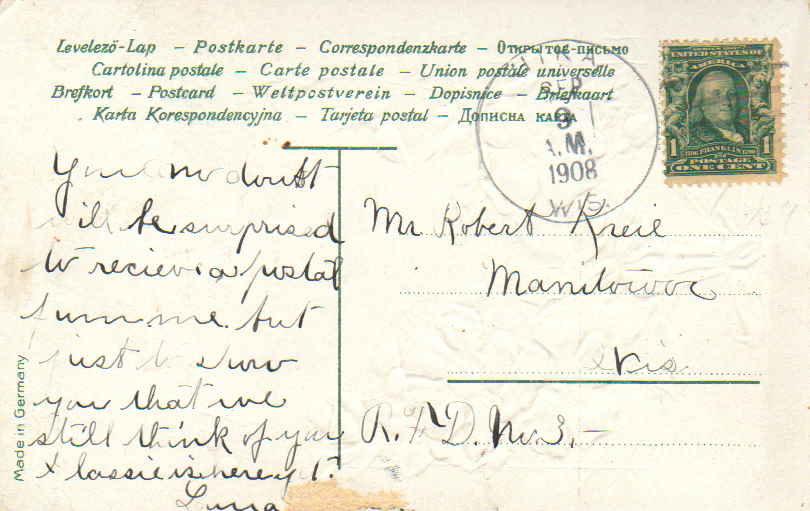 Levelezö-Lap – Postkarte – Correspondenzkarte – Открытое-письмо
Cartolina postale – Carte postale – Union postale universelle
Brefkort – Postcard – Weltpostverein – Dopisnice – Briefkaart
Karta Korespondencyjna – Tarjeta postal – Дописна карта
SEP
9
A.M.
1908
WIS.
UNITED STATES OF
AMERICA
FRANKLIN
1 POSTAGE 1
ONE CENT
You no doubt
will be surprised
to recieve a postal
fum me. but
just to show
you that we
still think of you
& lassie is here yt.
Mr Robert Kreie
Manitowoc
Wis
R. F. D. No. 3,
Made in Germany